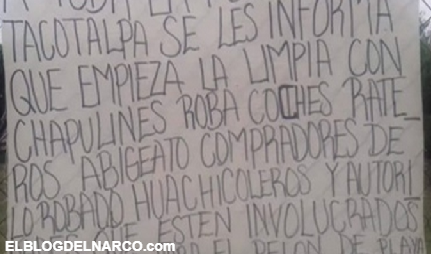 TODA LA
TACOTALPA SE LES INFORMA
QUE EMPIEZA LA LIMPIA CON
CHAPULINES ROBA COCHES RATE_
ROS ABIGEATO COMPRADORES DE
LO ROBADO HUACHICOLEROS Y AUTORI_
QUE ESTEN INVOLUCRADOS
EL PELON DE PLAYA
ELBLOGDELNARCO.com